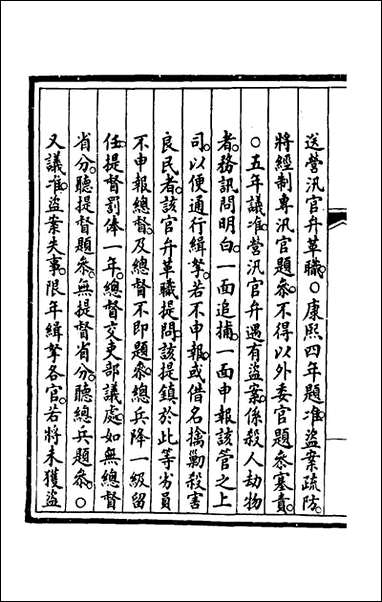 送營汛官弁革職○康熙四年題准盜案疏防
將經制專汛官題參不得以外委官題參塞責
○五年議准營汛官弁遇有盜案係殺人劫物
者務訊問明白一面追捕一面申報該管之上
司以便通行緝拏若不申報或借名擒勦殺害
良民者該官弁革職提問該提鎮於此等劣員
不申報總督及總督不即題參總兵降一級留
任提督罰俸一年總督交吏部議處如無總督
省分聽提督題參無提督省分聽總兵題參○
又議准盜案失事限年緝拏各官若將未獲盜